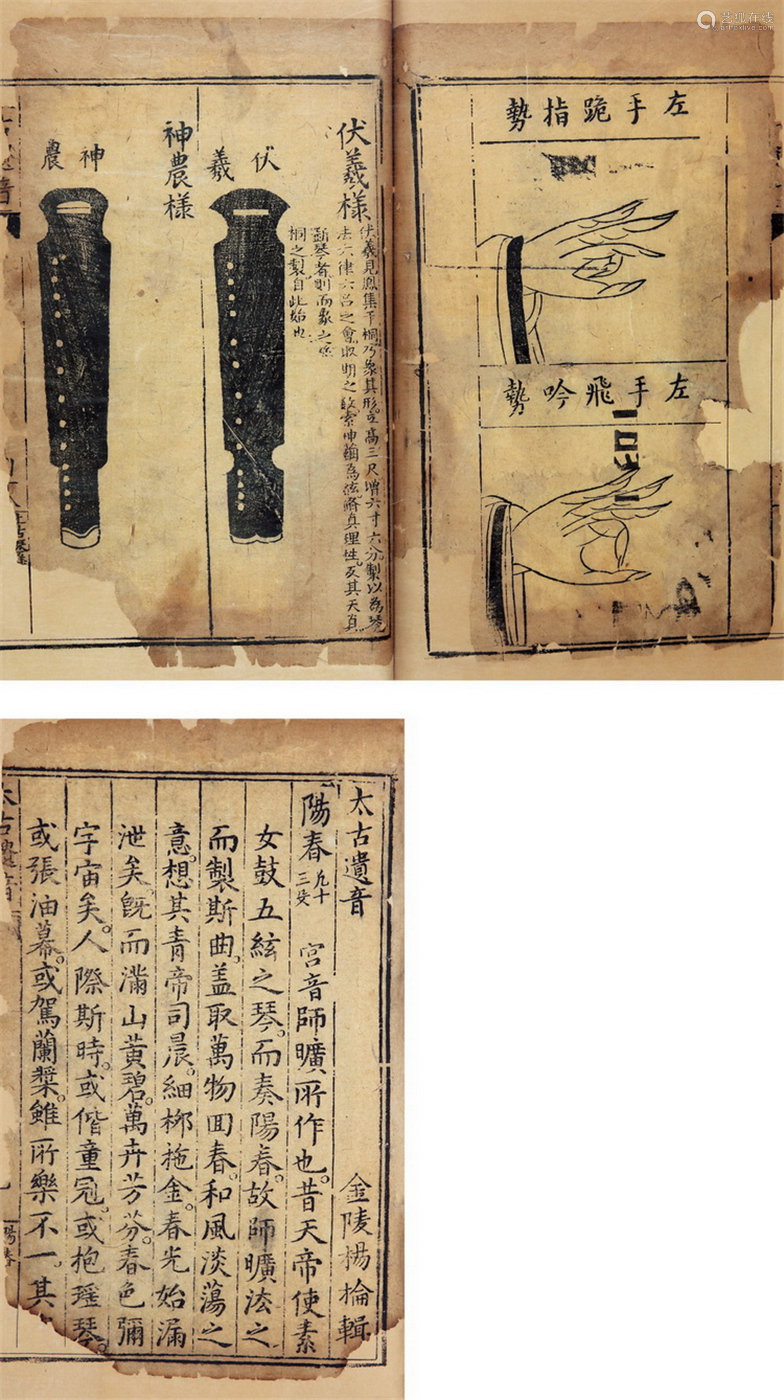 左手跪指勢
左手飛吟勢
伏羲樣
伏羲見鳳集于桐乃象其形立高三尺增六寸六分製以為琴
法六律六呂之會取明之
斵琴者則而象之
桐之製自此始也
伏羲
神農樣
神農
太古遺音
金陵楊掄輯
陽春
九十
三段
宮音師曠所作也。昔天帝使素
女鼓五絃之琴。而奏陽春。故師曠法之
而製斯曲。盖取萬物囬春。和風淡蕩之
意。想其青帝司晨。細栁拖金。春光始漏
泄矣。旣而滿山黃碧。萬卉芳芬。春色彌
宇宙矣。人際斯時。或偕童冠。或抱瑶琴。
或張油幕。或駕蘭槳。雖所樂不一。其
太古遺音
陽春